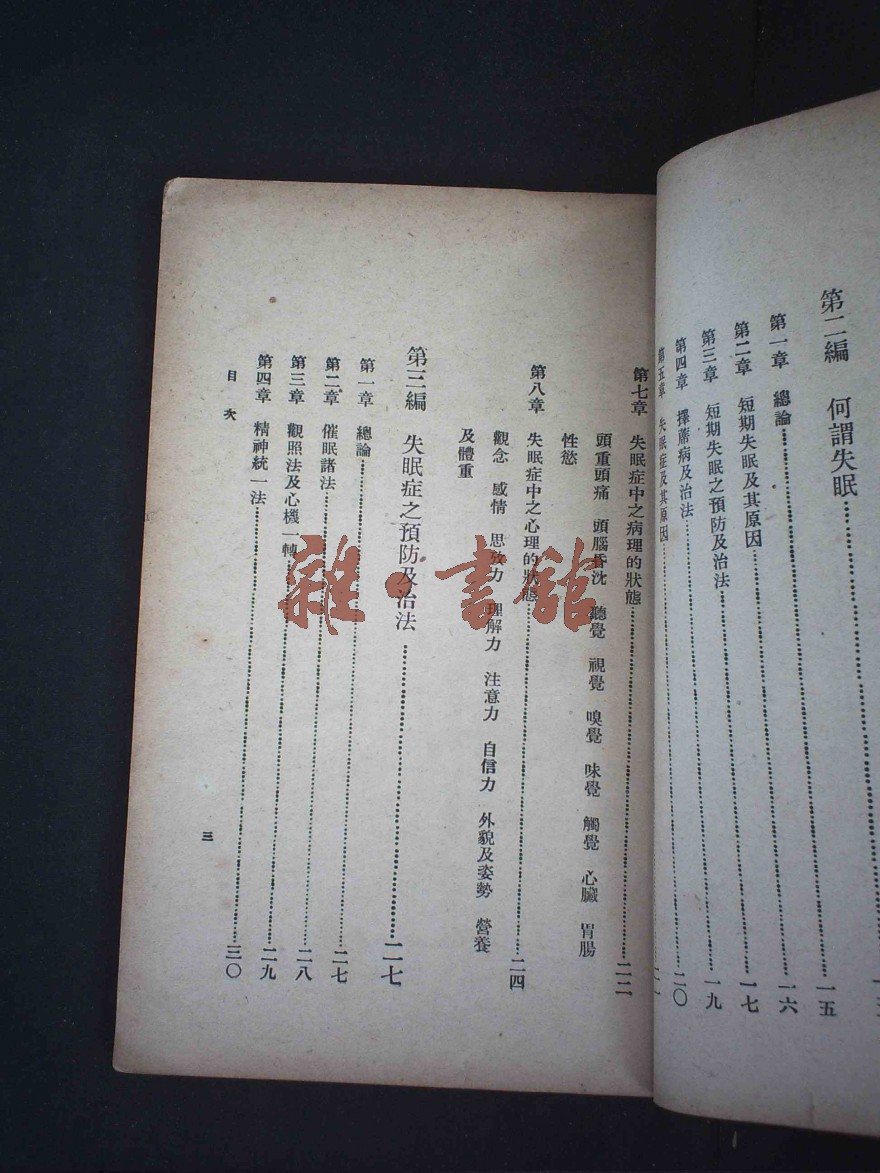 第二編　何謂失眠……
第一章　總論……一五
第二章　短期失眠及其原因……一六
第三章　短期失眠之預防及治法……一七
第四章　擇蓆病及治法……一九
第五章　失眠症及其原因……二〇
……二一
第七章　失眠症中之病理的狀態……二二
頭重頭痛　頭腦昏沈　聽覺　視覺　嗅覺　味覺　觸覺　心臟　胃腸
性慾
第八章　失眠症中之心理的狀態……二四
觀念　感情　思攷力　理解力　注意力　自信力　外貌及姿勢　營養
及體重
第三編　失眠症之預防及治法……二七
第一章　總論……二七
第二章　催眠諸法……二八
第三章　觀照法及心機一轉……二九
第四章　精神統一法……三〇
目次
三
雜·書館